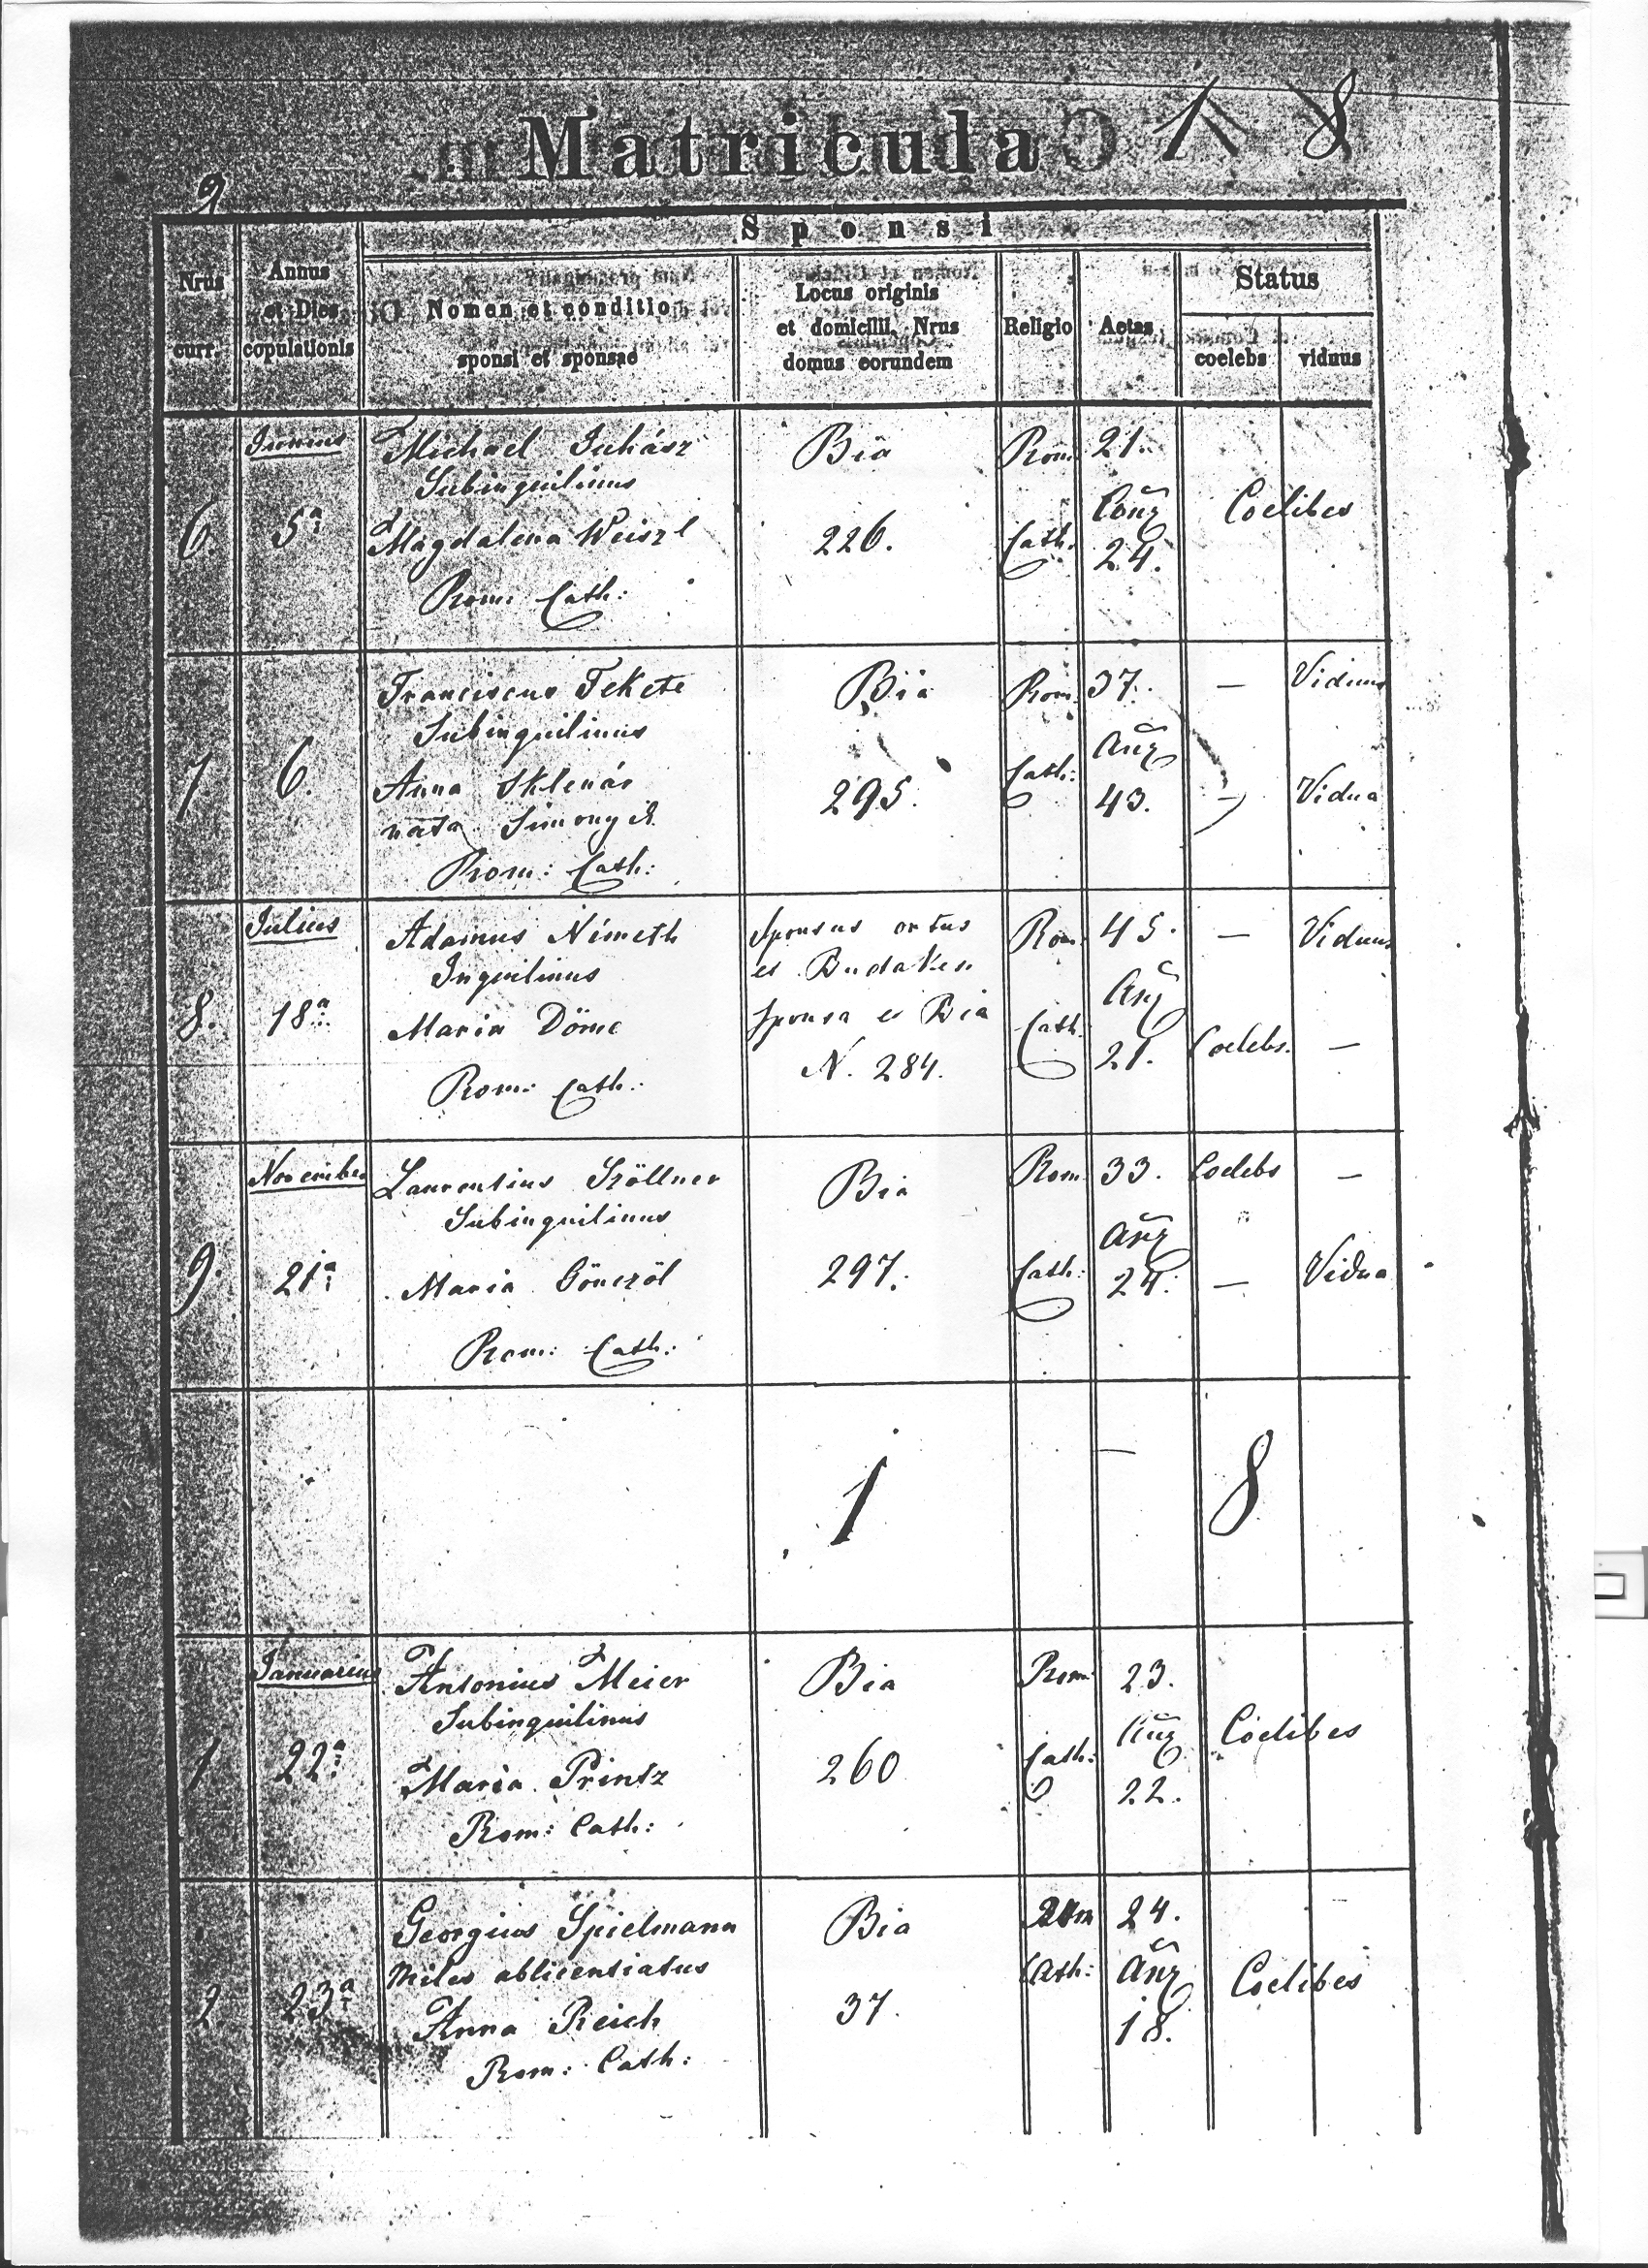 Matricula 1 8
2
Sponsi
Nrus curr.
Annus et Dies copulationis
Nomen et conditio sponsi et sponsae
Locus originis et domicilii, Nrus domus eorundem
Religio
Aetas
Status
coelebs
viduus
Junius Michael Juhász Bia Rom. 21.
Subinquilinus
6. 5a Coelibes
Magdalena Weiszl 226. Cath. 24.
Rom: Cath:
Franciscus Fekete Bia Rom. 37. — Viduus
Subinquilinus
7 6. Anna Sklenár 295. Cath: 43. — Vidua
nata Simonyik
Rom: Cath:
Julius Adamus Németh Sponsus ortus Rom. 45. — Viduus
Inquilinus es Budakesi
8. 18a Maria Döme Sponsa es Bia Cath. 21. Coelebs. —
N. 284.
Rom: Cath:
November Laurentius Szöllner Bia Rom 33. Coelebs —
Subinquilinus
9. 21a Maria Gönczöl 297. Cath: 24. — Vidua
Rom: Cath:
1 8
Januarius Antonius Meier Bia Rom 23.
Subinquilinus Coelibes
1 22a Maria Printz 260 Cath: 22.
Rom: Cath:
Georgius Spielmann Bia Rom 24.
Miles ablicentiatus Cath: Coelibes
2. 23a Anna Reich 37. 18.
Rom: Cath: